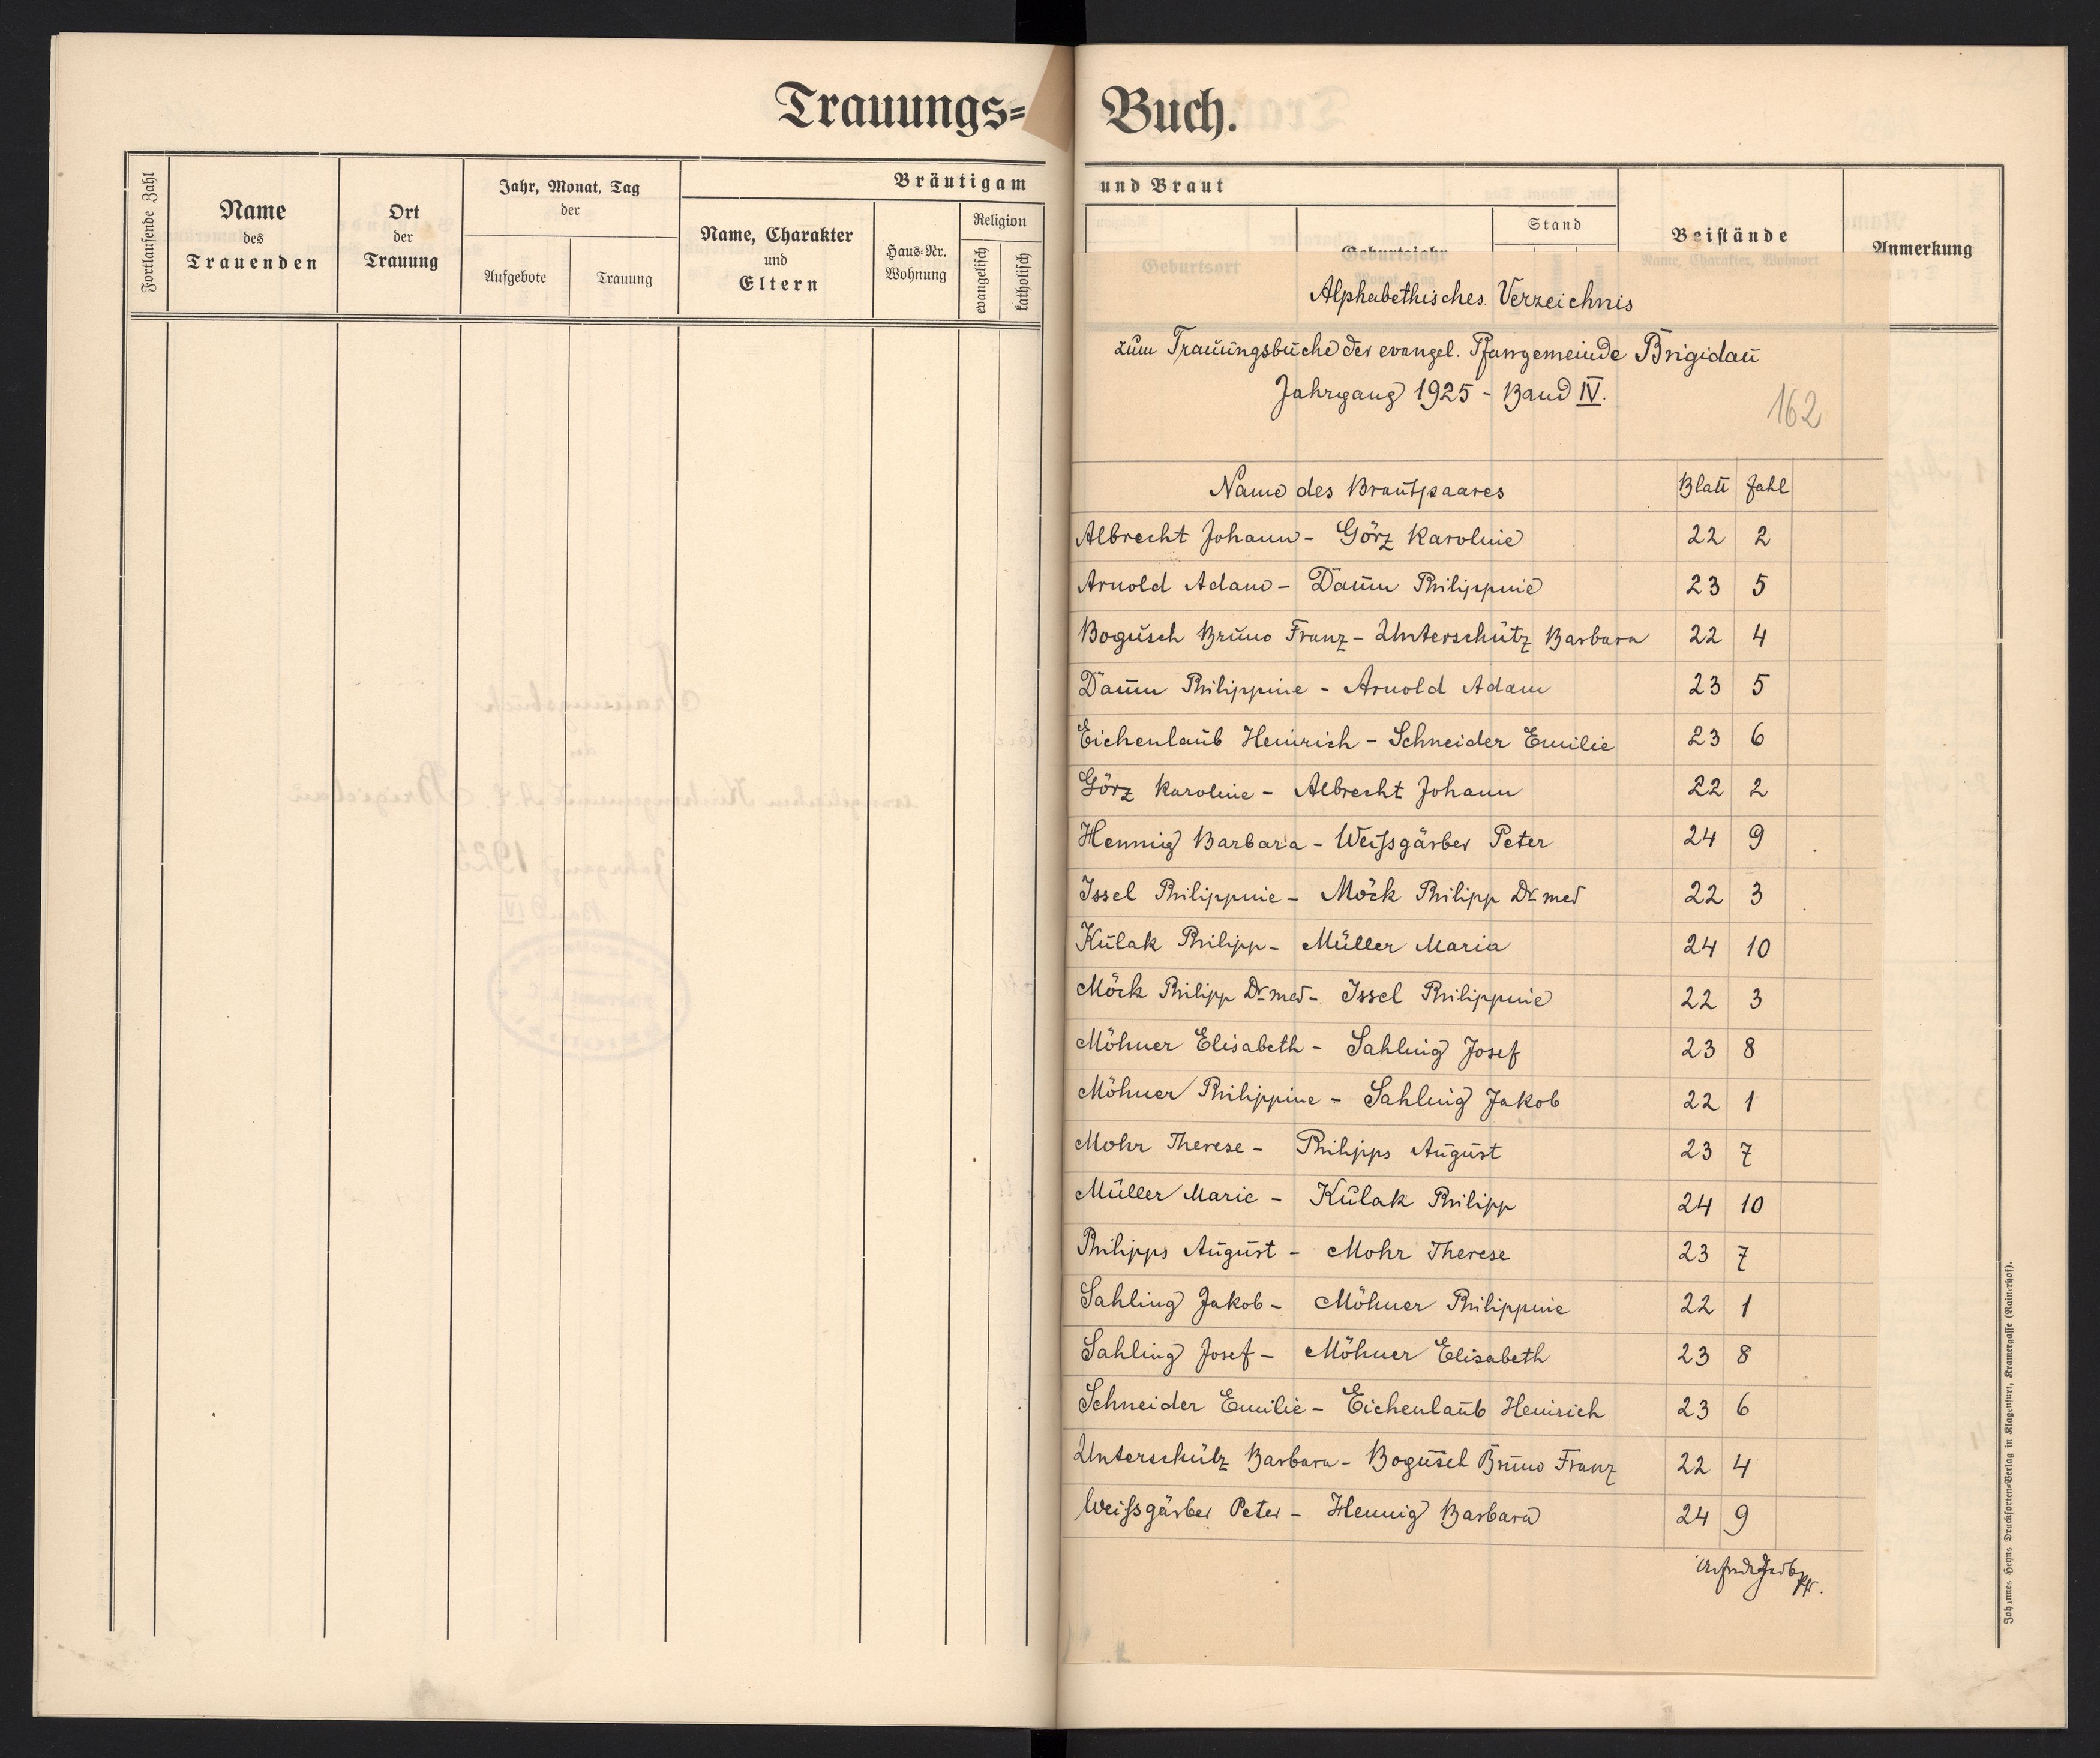 Trauungs=
Fortlaufende Zahl
Name
des
Trauenden
Ort
der
Trauung
Jahr, Monat, Tag
der
Aufgebote
Trauung
Bräutigam
Name, Charakter
und
Eltern
Haus-Nr.
Wohnung
Religion
evangelisch
katholisch
Buch.
und Braut
Geburtsort
Geburtsjahr
Monat, Tag
Stand
Beistände
Name, Charakter, Wohnort
Anmerkung
Alphabethisches Verzeichnis
zum Trauungsbuche der evangel. Pfarrgemeinde Brigidau
Jahrgang 1925 - Band IV.
162
Name des Brautpaares Blatt Zahl
Albrecht Johann - Görz Karoline 22 2
Arnold Adam - Daum Philippine 23 5
Bogusch Bruno Franz - Unterschütz Barbara 22 4
Daum Philippine - Arnold Adam 23 5
Eichenlaub Heinrich - Schneider Emilie 23 6
Görz Karoline - Albrecht Johann 22 2
Hennig Barbara - Weißgärber Peter 24 9
Issel Philippine - Möck Philipp Dr med 22 3
Kulak Philipp - Müller Maria 24 10
Möck Philipp Dr med - Issel Philippine 22 3
Möhner Elisabeth - Sahling Josef 23 8
Möhner Philippine - Sahling Jakob 22 1
Mohr Therese - Philipps August 23 7
Müller Marie - Kulak Philipp 24 10
Philipps August - Mohr Therese 23 7
Sahling Jakob - Möhner Philippine 22 1
Sahling Josef - Möhner Elisabeth 23 8
Schneider Emilie - Eichenlaub Heinrich 23 6
Unterschütz Barbara - Bogusch Bruno Franz 22 4
Weißgärber Peter - Hennig Barbara 24 9
Pfr.
Johannes Heyns Drucksorten-Verlag in Klagenfurt, Kramergasse (Rainerhof).